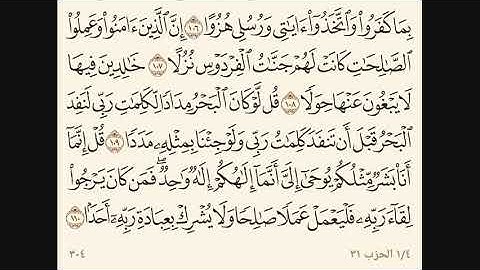 بِمَا كَفَرُوا۟ وَٱتَّخَذُوٓا۟ ءَايَٰتِى وَرُسُلِى هُزُوًا ١٠٦ إِنَّ ٱلَّذِينَ ءَامَنُوا۟ وَعَمِلُوا۟
ٱلصَّٰلِحَٰتِ كَانَتْ لَهُمْ جَنَّٰتُ ٱلْفِرْدَوْسِ نُزُلًا ١٠٧ خَٰلِدِينَ فِيهَا
لَا يَبْغُونَ عَنْهَا حِوَلًا ١٠٨ قُل لَّوْ كَانَ ٱلْبَحْرُ مِدَادًا لِّكَلِمَٰتِ رَبِّى لَنَفِدَ
ٱلْبَحْرُ قَبْلَ أَن تَنفَدَ كَلِمَٰتُ رَبِّى وَلَوْ جِئْنَا بِمِثْلِهِۦ مَدَدًا ١٠٩ قُلْ إِنَّمَآ
أَنَا۠ بَشَرٌ مِّثْلُكُمْ يُوحَىٰٓ إِلَىَّ أَنَّمَآ إِلَٰهُكُمْ إِلَٰهٌ وَٰحِدٌ ۖ فَمَن كَانَ يَرْجُوا۟
لِقَآءَ رَبِّهِۦ فَلْيَعْمَلْ عَمَلًا صَٰلِحًا وَلَا يُشْرِكْ بِعِبَادَةِ رَبِّهِۦٓ أَحَدًۢا ١١٠
١/٤ الحزب ٣١ ٣٠٤